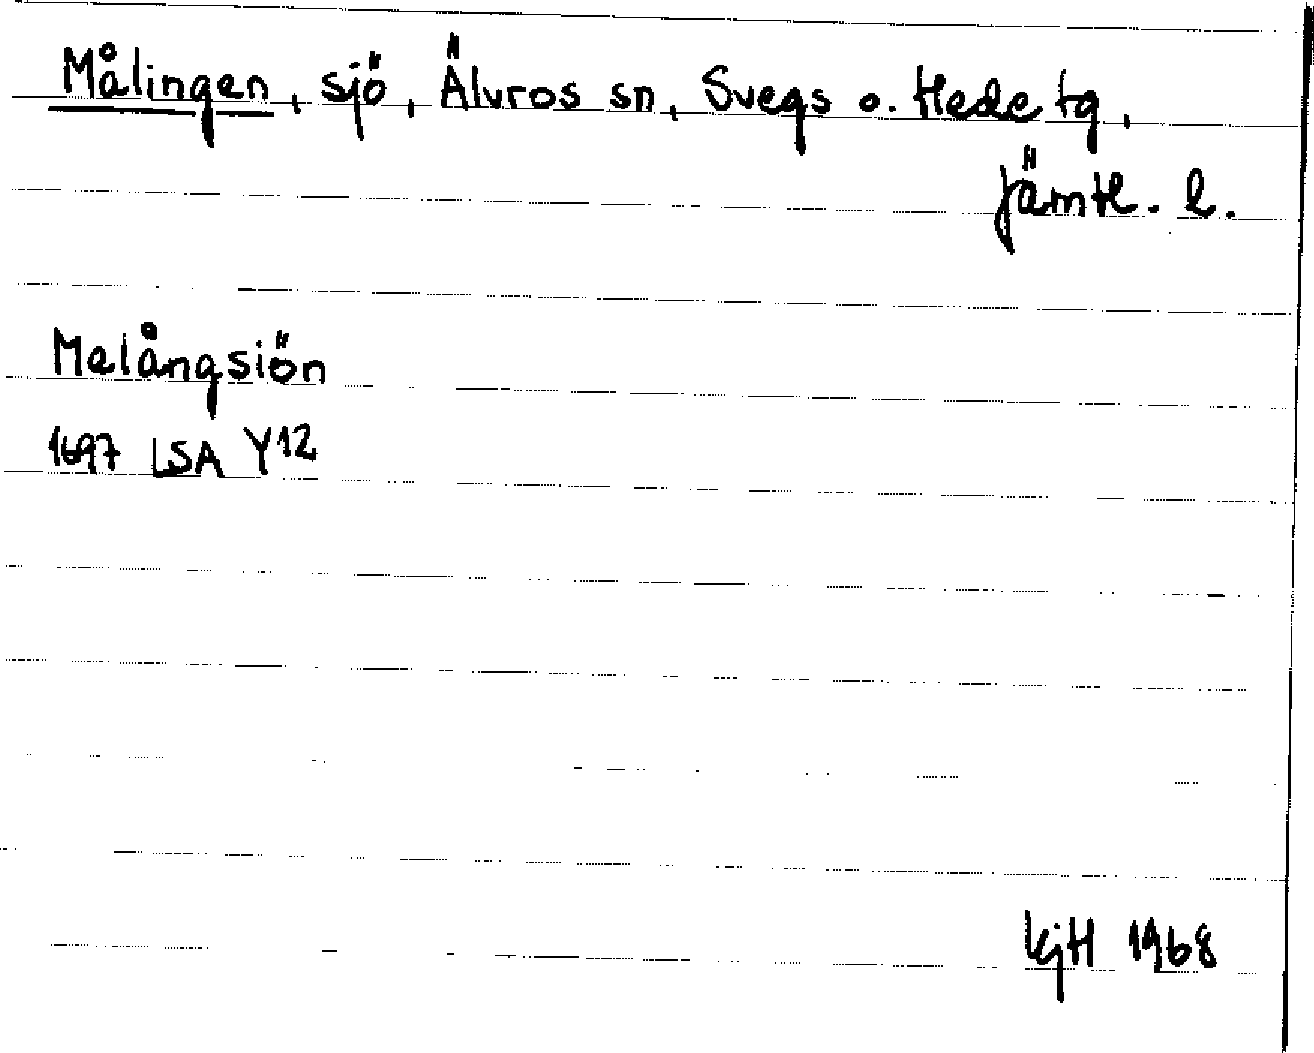 Målingen, sjö, Älvros sn, Svegs o. Hede tg,
Jämtl. l.
Melångsiön
1697 LSA Y12
KjH 1968